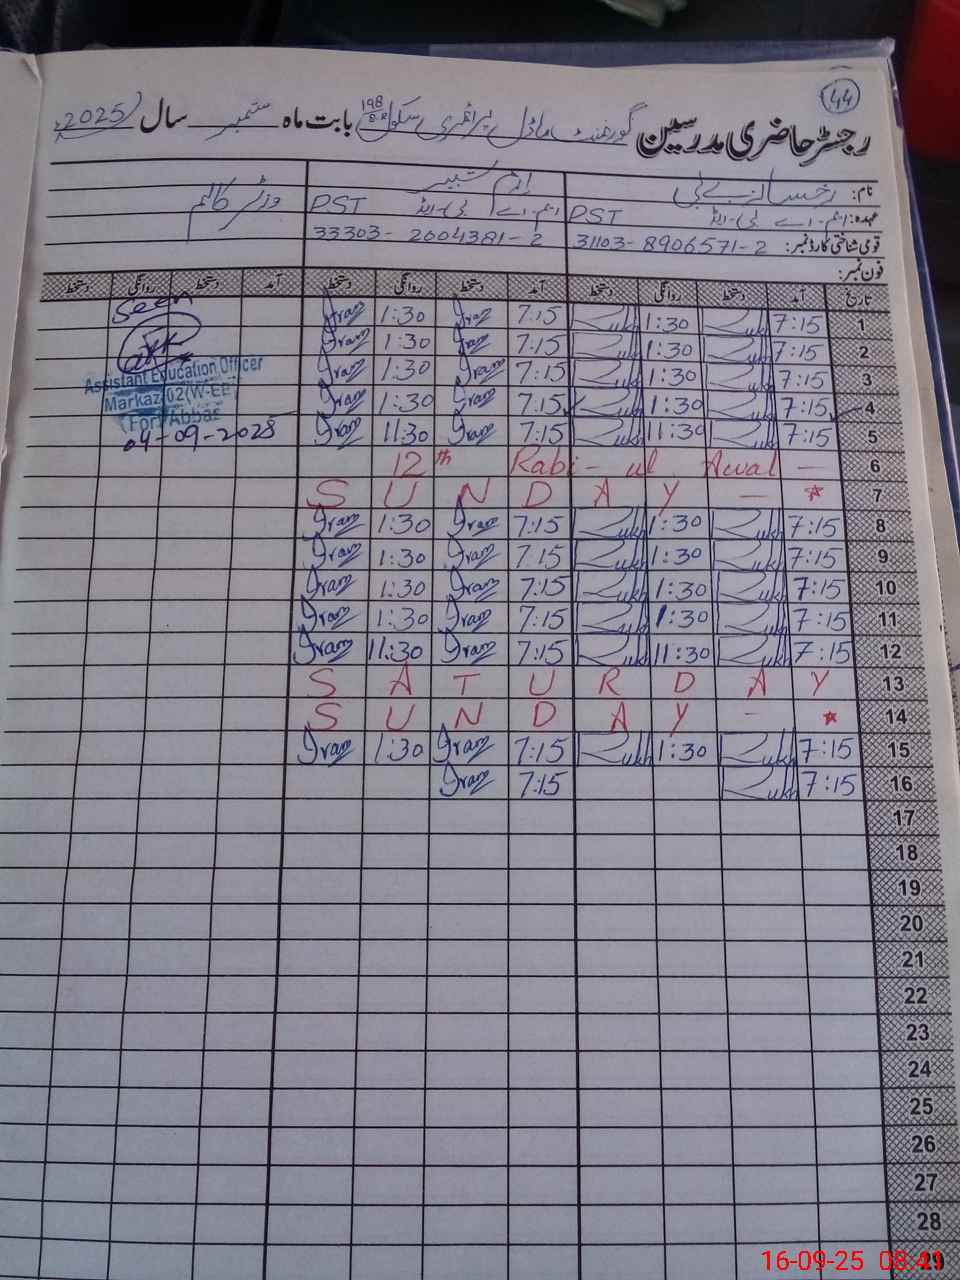 44
رجسٹر حاضری مدرسین گورنمنٹ ماڈل پرائمری سکول 198 بابت ماہ ستمبر سال 2025
نام: رخسانہ بی بی ارم شبیر
عہدہ: ایم-اے بی-ایڈ PST ایم-اے بی-ایڈ PST وزٹر کالم
قومی شناختی کارڈ نمبر: 31103-8906571-2 33303-2004381-2
فون نمبر:
تاریخ آمد دستخط روانگی دستخط آمد دستخط روانگی دستخط آمد دستخط روانگی دستخط
1 7:15 Rukh 1:30 Rukh 7:15 Iram 1:30 Iram Seen
2 7:15 Rukh 1:30 Rukh 7:15 Iram 1:30 Iram
3 7:15 Rukh 1:30 Rukh 7:15 Iram 1:30 Iram Assistant Education Officer
4 7:15 Rukh 1:30 Rukh 7:15 Iram 1:30 Iram Markaz 02(W-EE
5 7:15 Rukh 11:30 Rukh 7:15 Iram 11:30 Iram (Fort Abbas
04-09-2025
6 12th Rabi-ul Awal -
7 SUNDAY -
8 7:15 Rukh 1:30 Rukh 7:15 Iram 1:30 Iram
9 7:15 Rukh 1:30 Rukh 7:15 Iram 1:30 Iram
10 7:15 Rukh 1:30 Rukh 7:15 Iram 1:30 Iram
11 7:15 Rukh 1:30 Rukh 7:15 Iram 1:30 Iram
12 7:15 Rukh 11:30 Rukh 7:15 Iram 11:30 Iram
13 SATURDAY
14 SUNDAY -
15 7:15 Rukh 1:30 Rukh 7:15 Iram 1:30 Iram
16 7:15 Rukh 7:15 Iram
17
18
19
20
21
22
23
24
25
26
27
28
29
16-09-25 08:41